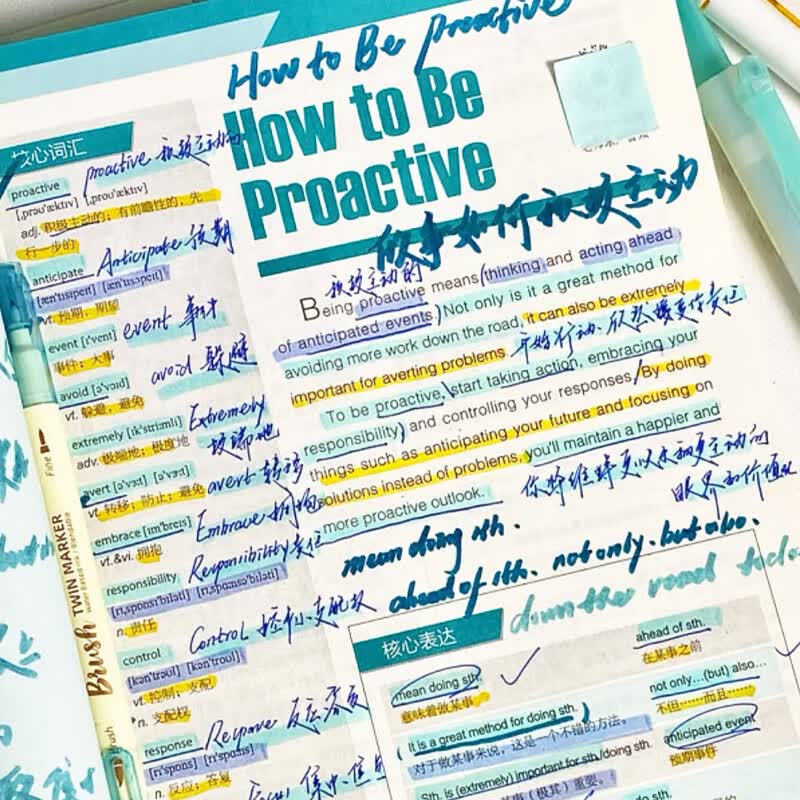 How to Be proactive
How to Be
Proactive
做事如何积极主动
核心词汇
proactive 积极主动的
proactive
[ˌprəʊˈæktɪv] [ˌproʊˈæktɪv]
adj. 积极主动的；有前瞻性的，先
行一步的
anticipate Anticipate 预期
[ænˈtɪsɪpeɪt] [ænˈtɪsəpeɪt]
vt. 预期，期望
event [ɪˈvent] event 事件
事件；大事
avoid [əˈvɔɪd] avoid 躲避
vt. 躲避，避免
extremely [ɪkˈstriːmli] Extremely
adv. 极端地；极度地 极端地
avert [əˈvɜːt] [əˈvɜːt]
vt. 转移；防止；避免 avert 转移
embrace [ɪmˈbreɪs] Embrace 拥抱
vt.&vi. 拥抱
responsibility Responsibility 责任
[rɪˌspɒnsəˈbɪləti] [rɪˌspɑːnsəˈbɪləti]
n. 责任
control Control 控制 支配权
[kənˈtrəʊl] [kənˈtroʊl]
vt. 控制；支配
n. 支配权
response Response 反应 答复
[rɪˈspɒns] [rɪˈspɑːns]
n. 反应；答复
积极主动的
Being proactive means thinking and acting ahead
of anticipated events. Not only is it a great method for
avoiding more work down the road, it can also be extremely
important for averting problems.
开始行动、欣然接受责任
To be proactive, start taking action, embracing your
responsibility, and controlling your responses. By doing
things such as anticipating your future and focusing on
solutions instead of problems, you'll maintain a happier and
more proactive outlook.
你将维持更快乐和更主动的
眼界和价值观
mean doing sth.
ahead of sth. not only. but also.
down the road
核心表达
mean doing sth.
意味着做某事
It is a great method for doing sth.
对于做某事来说，这是一个不错的方法。
Sth. is (extremely) important for sth./doing sth.
ahead of sth.
在某事之前
not only…(but) also…
不但……而且……
anticipated event
预期事件
Fine
Brush TWIN MARKER
Water based ink / Blendable
Brush